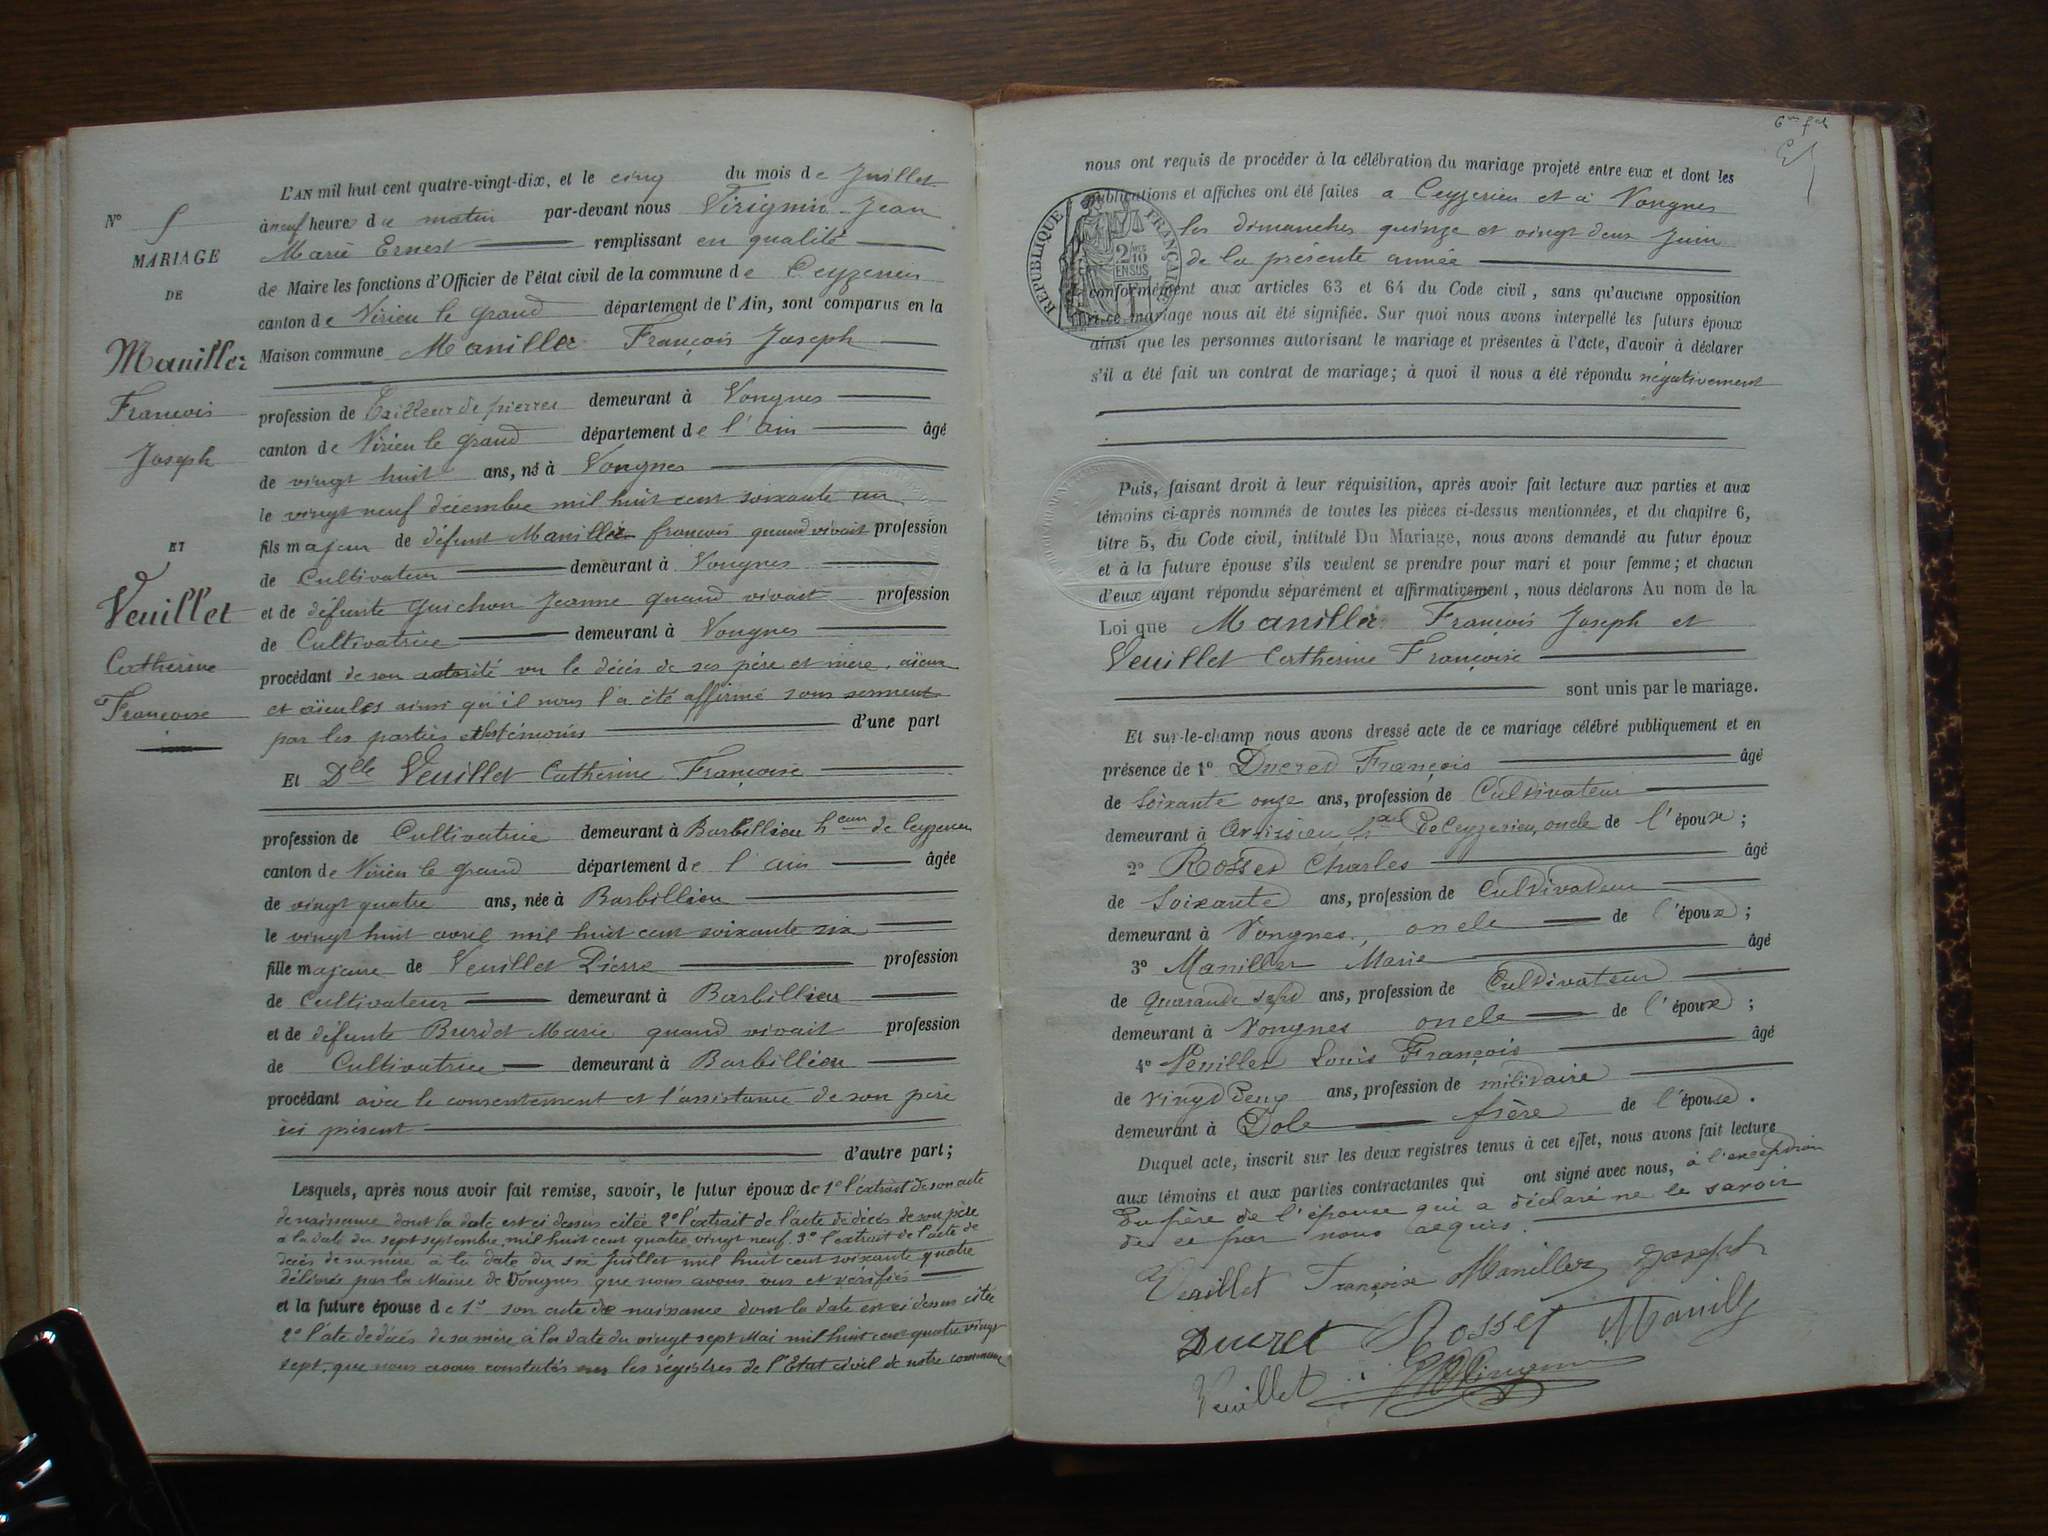 L'AN mil huit cent quatre-vingt-dix, et le cinq du mois de Juillet
à neuf heure du matin par-devant nous Virignin Jean
Marie Ernest remplissant en qualité
de Maire les fonctions d'Officier de l'état civil de la commune de Ceyzerieu
canton de Virieu le grand département de l'Ain, sont comparus en la
Maison commune Maniller François Joseph
profession de Tailleur de pierres demeurant à Vongnes
canton de Virieu le grand département de l'ain âgé
de vingt huit ans, né à Vongnes
le vingt neuf décembre mil huit cent soixante un
fils majeur de défunt Maniller françois quand vivait profession
de Cultivateur demeurant à Vongnes
et de défunte Guichon Jeanne quand vivait profession
de Cultivatrice demeurant à Vongnes
procédant de son autorité vu le décès de ses père et mère, aïeux
et aïeules ainsi qu'il nous l'a été affirmé sous serment
par les parties et les témoins d'une part
Et Dlle Veuillet Catherine Françoise
profession de Cultivatrice demeurant à Barbillieu heau de Ceyzerieu
canton de Virieu le grand département de l'ain âgée
de vingt quatre ans, née à Barbillieu
le vingt huit avril mil huit cent soixante six
fille majeure de Veuillet Pierre profession
de Cultivateur demeurant à Barbillieu
et de défunte Burdet Marie quand vivait profession
de Cultivatrice demeurant à Barbillieu
procédant avec le consentement et l'assistance de son père
ici présent
d'autre part;
Lesquels, après nous avoir fait remise, savoir, le futur époux de 1º l'extrait de son acte
de naissance dont la date est ci dessus citée 2º l'extrait de l'acte de décès de son père
à la date du sept septembre mil huit cent quatre vingt neuf. 3º l'extrait de l'acte de
décès de sa mère à la date du six Juillet mil huit cent soixante quatre
délivrés par la Mairie de Vongnes que nous avons vus et vérifiés
et la future épouse de 1º son acte de naissance dont la date est ci dessus citée
2º l'ate de décès de sa mère à la date du vingt sept Mai mil huit cent quatre vingt
sept, que nous avons constatés sur les régistres de l'Etat civil de notre commune
Nº 5
MARIAGE
DE
Maniller
François
Joseph
ET
Veuillet
Catherine
Françoise
6me fet
nous ont requis de procéder à la célébration du mariage projeté entre eux et dont les
publications et affiches ont été faites a Ceyzerieu et à Vongnes
les dimanches quinze et vingt deux Juin
de la présente année
conformément aux articles 63 et 64 du Code civil, sans qu'aucune opposition
à ce mariage nous ait été signifiée. Sur quoi nous avons interpellé les futurs époux
ainsi que les personnes autorisant le mariage et présentes à l'acte, d'avoir à déclarer
s'il a été fait un contrat de mariage; à quoi il nous a été répondu négativement
RÉPUBLIQUE FRANÇAISE
2/10 EN SUS
Puis, faisant droit à leur réquisition, après avoir fait lecture aux parties et aux
témoins ci-après nommés de toutes les pièces ci-dessus mentionnées, et du chapitre 6,
titre 5, du Code civil, intitulé Du Mariage, nous avons demandé au futur époux
et à la future épouse s'ils veulent se prendre pour mari et pour femme; et chacun
d'eux ayant répondu séparément et affirmativement, nous déclarons Au nom de la
Loi que Maniller François Joseph et
Veuillet Catherine Françoise
sont unis par le mariage.
Et sur-le-champ nous avons dressé acte de ce mariage célébré publiquement et en
présence de 1º Ducret François âgé
de Soixante onze ans, profession de Cultivateur
demeurant à Avrissieu hau de Ceyzerieu, oncle de l'époux;
2º Rosset Charles âgé
de Soixante ans, profession de Cultivateur
demeurant à Vongnes, oncle de l'époux;
3º Maniller Marie âgé
de Quarante sept ans, profession de Cultivateur
demeurant à Vongnes oncle de l'époux;
4º Veuillet Louis François âgé
de vingt deux ans, profession de militaire
demeurant à Dole frère de l'épouse.
Duquel acte, inscrit sur les deux registres tenus à cet effet, nous avons fait lecture
aux témoins et aux parties contractantes qui ont signé avec nous, à l'exception
du père de l'épouse qui a déclaré ne le savoir
de ce par nous requis.
Veuillet Françoise Maniller Joseph
Ducret Rosset Manill
Veuillet